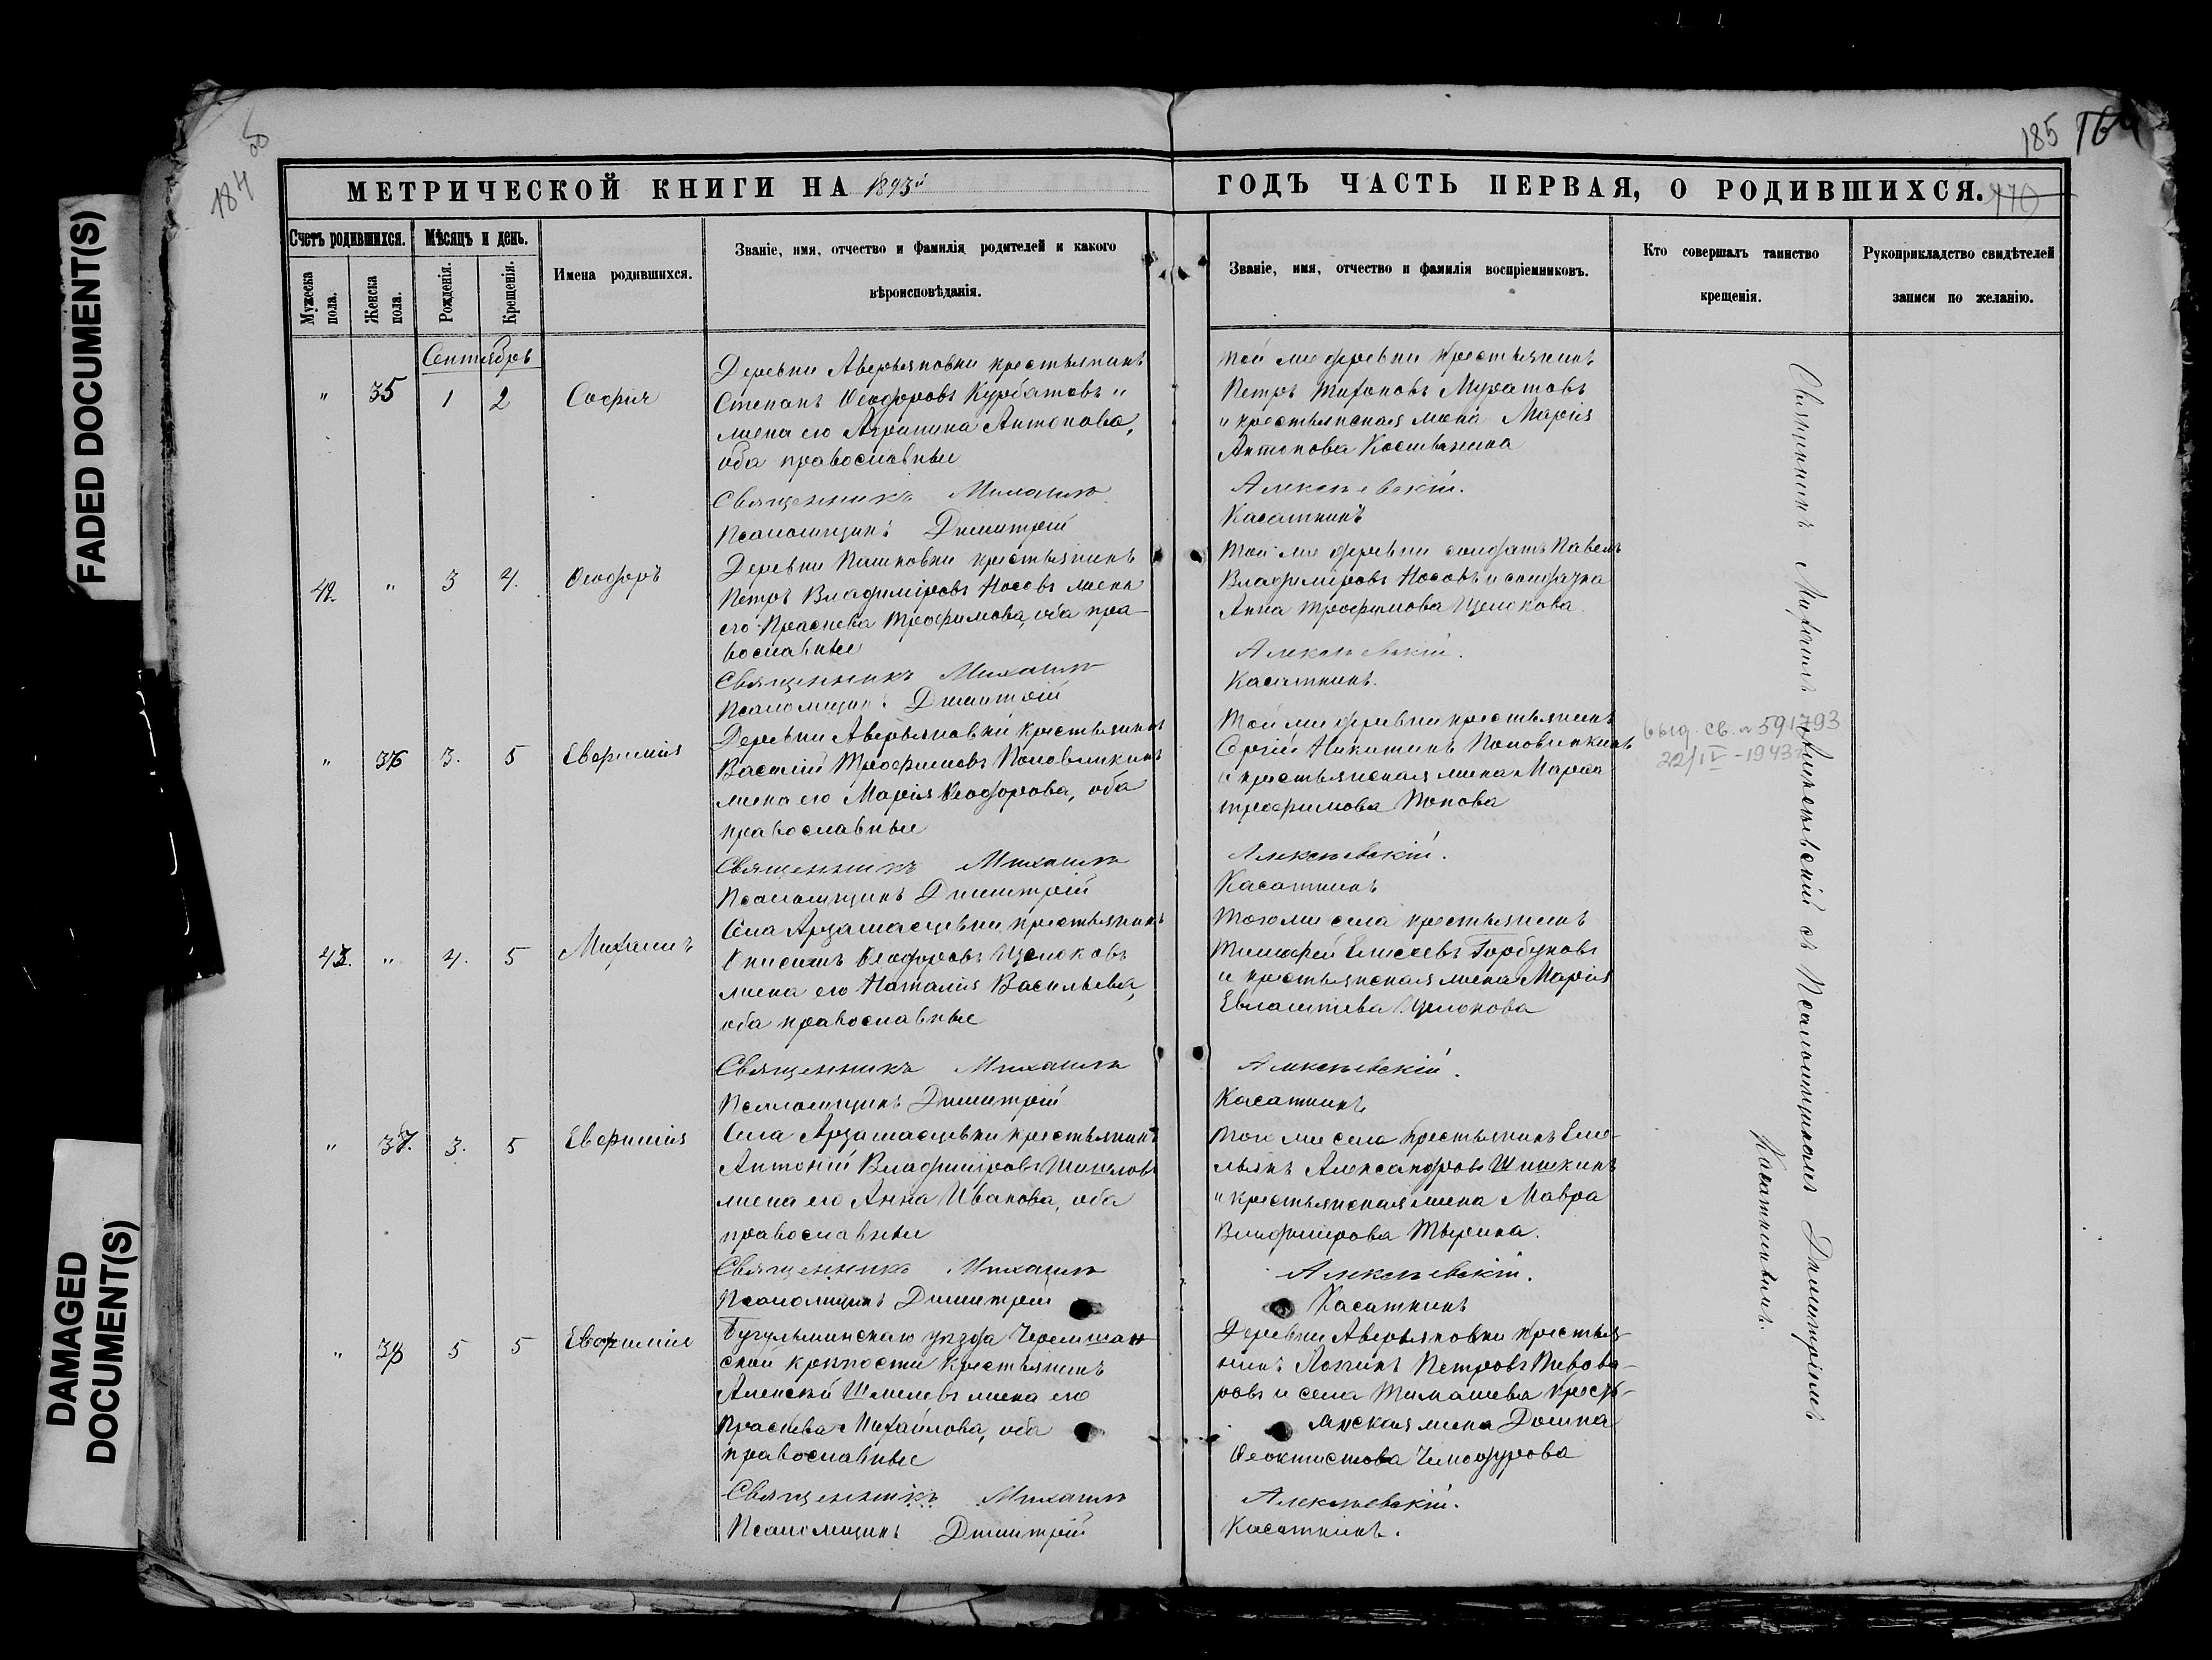 FADED DOCUMENT(S)
DAMAGED
DOCUMENT(S)
184
185
170
МЕТРИЧЕСКОЙ КНИГИ НА 1893й
ГОДЪ ЧАСТЬ ПЕРВАЯ, О РОДИВШИХСЯ.
Счетъ родившихся.
Мужеска пола.
Женска пола.
Мѣсяцъ и день.
Рожденія.
Крещенія.
Имена родившихся.
Званіе, имя, отчество и фамилія родителей и какого
вѣроисповѣданія.
Званіе, имя, отчество и фамилія воспріемниковъ.
Кто совершалъ таинство
крещенія.
Рукоприкладство свидѣтелей
записи по желанію.
Сентябрь
" 35 1 2 Софія
Деревни Аверьяновки крестьянинъ
Степанъ Ѳеодоровъ Курбатовъ и
жена его Агрипина Антонова,
оба православные
Той же деревни крестьянинъ
Петръ Тихоновъ Муратовъ
и крестьянская жена Марія
Антонова
Священникъ Михаилъ Алексѣевскій.
Псаломщикъ Димитрій Касаткинъ
42. " 3 4. Ѳеодоръ
Деревни Пашковки крестьянинъ
Петръ Владиміровъ Носовъ жена
его Праскева Трофимова, оба пра-
вославные
Той же деревни солдатъ Павелъ
Владиміровъ Носовъ и солдатка
Анна Трофимова Щелокова.
Священникъ Михаилъ Алексѣевскій.
Псаломщикъ Димитрій Касаткинъ.
" 36 3. 5 Евфимія
Деревни Аверьяновки крестьянинъ
Василій Трофимовъ Половинкинъ
жена его Марія Ѳеодорова, оба
православные
Той же деревни крестьянинъ
Сергій Никитинъ Половинкинъ
и крестьянская жена Марѳа
Трофимова Попова
выд. св. № 591793
22/IV-1943
Священникъ Михаилъ Алексѣевскій.
Псаломщикъ Димитрій Касаткинъ
43. " 4. 5 Михаилъ
Села Арзамасцевки крестьянинъ
Ѳеодоровъ Щелоковъ
жена его Наталія Васильева,
оба православные
Того же села крестьянинъ
Тимофей Елисеевъ Горбуновъ
и крестьянская жена Марія
Щелокова
Священникъ Михаилъ Алексѣевскій.
Псаломщикъ Димитрій Касаткинъ
" 37. 3. 5 Евфимія
Села Арзамасцевки крестьянинъ
Антоній Владиміровъ
жена его Анна Иванова, оба
православные
Того же села крестьянинъ Еме-
льянъ Александровъ Шишкинъ
и крестьянская жена Мавра
Владимірова
Священникъ Михаилъ Алексѣевскій.
Псаломщикъ Димитрій Касаткинъ
" 38 5 5 Евфимія
Бугульминскаго уѣзда Черемшан-
ской крѣпости крестьянинъ
Алексѣй Шмелевъ жена его
Праскева Михайлова, оба
православные
Деревни Аверьяновки крестья-
нинъ Логинъ Петровъ Пивова-
ровъ и села Тимашева кресть-
янская жена Домна
Ѳеоктистова
Священникъ Михаилъ Алексѣевскій.
Псаломщикъ Димитрій Касаткинъ.
Священникъ Михаилъ Алексѣевскій съ Псаломщикомъ Димитріемъ
Касаткинымъ.